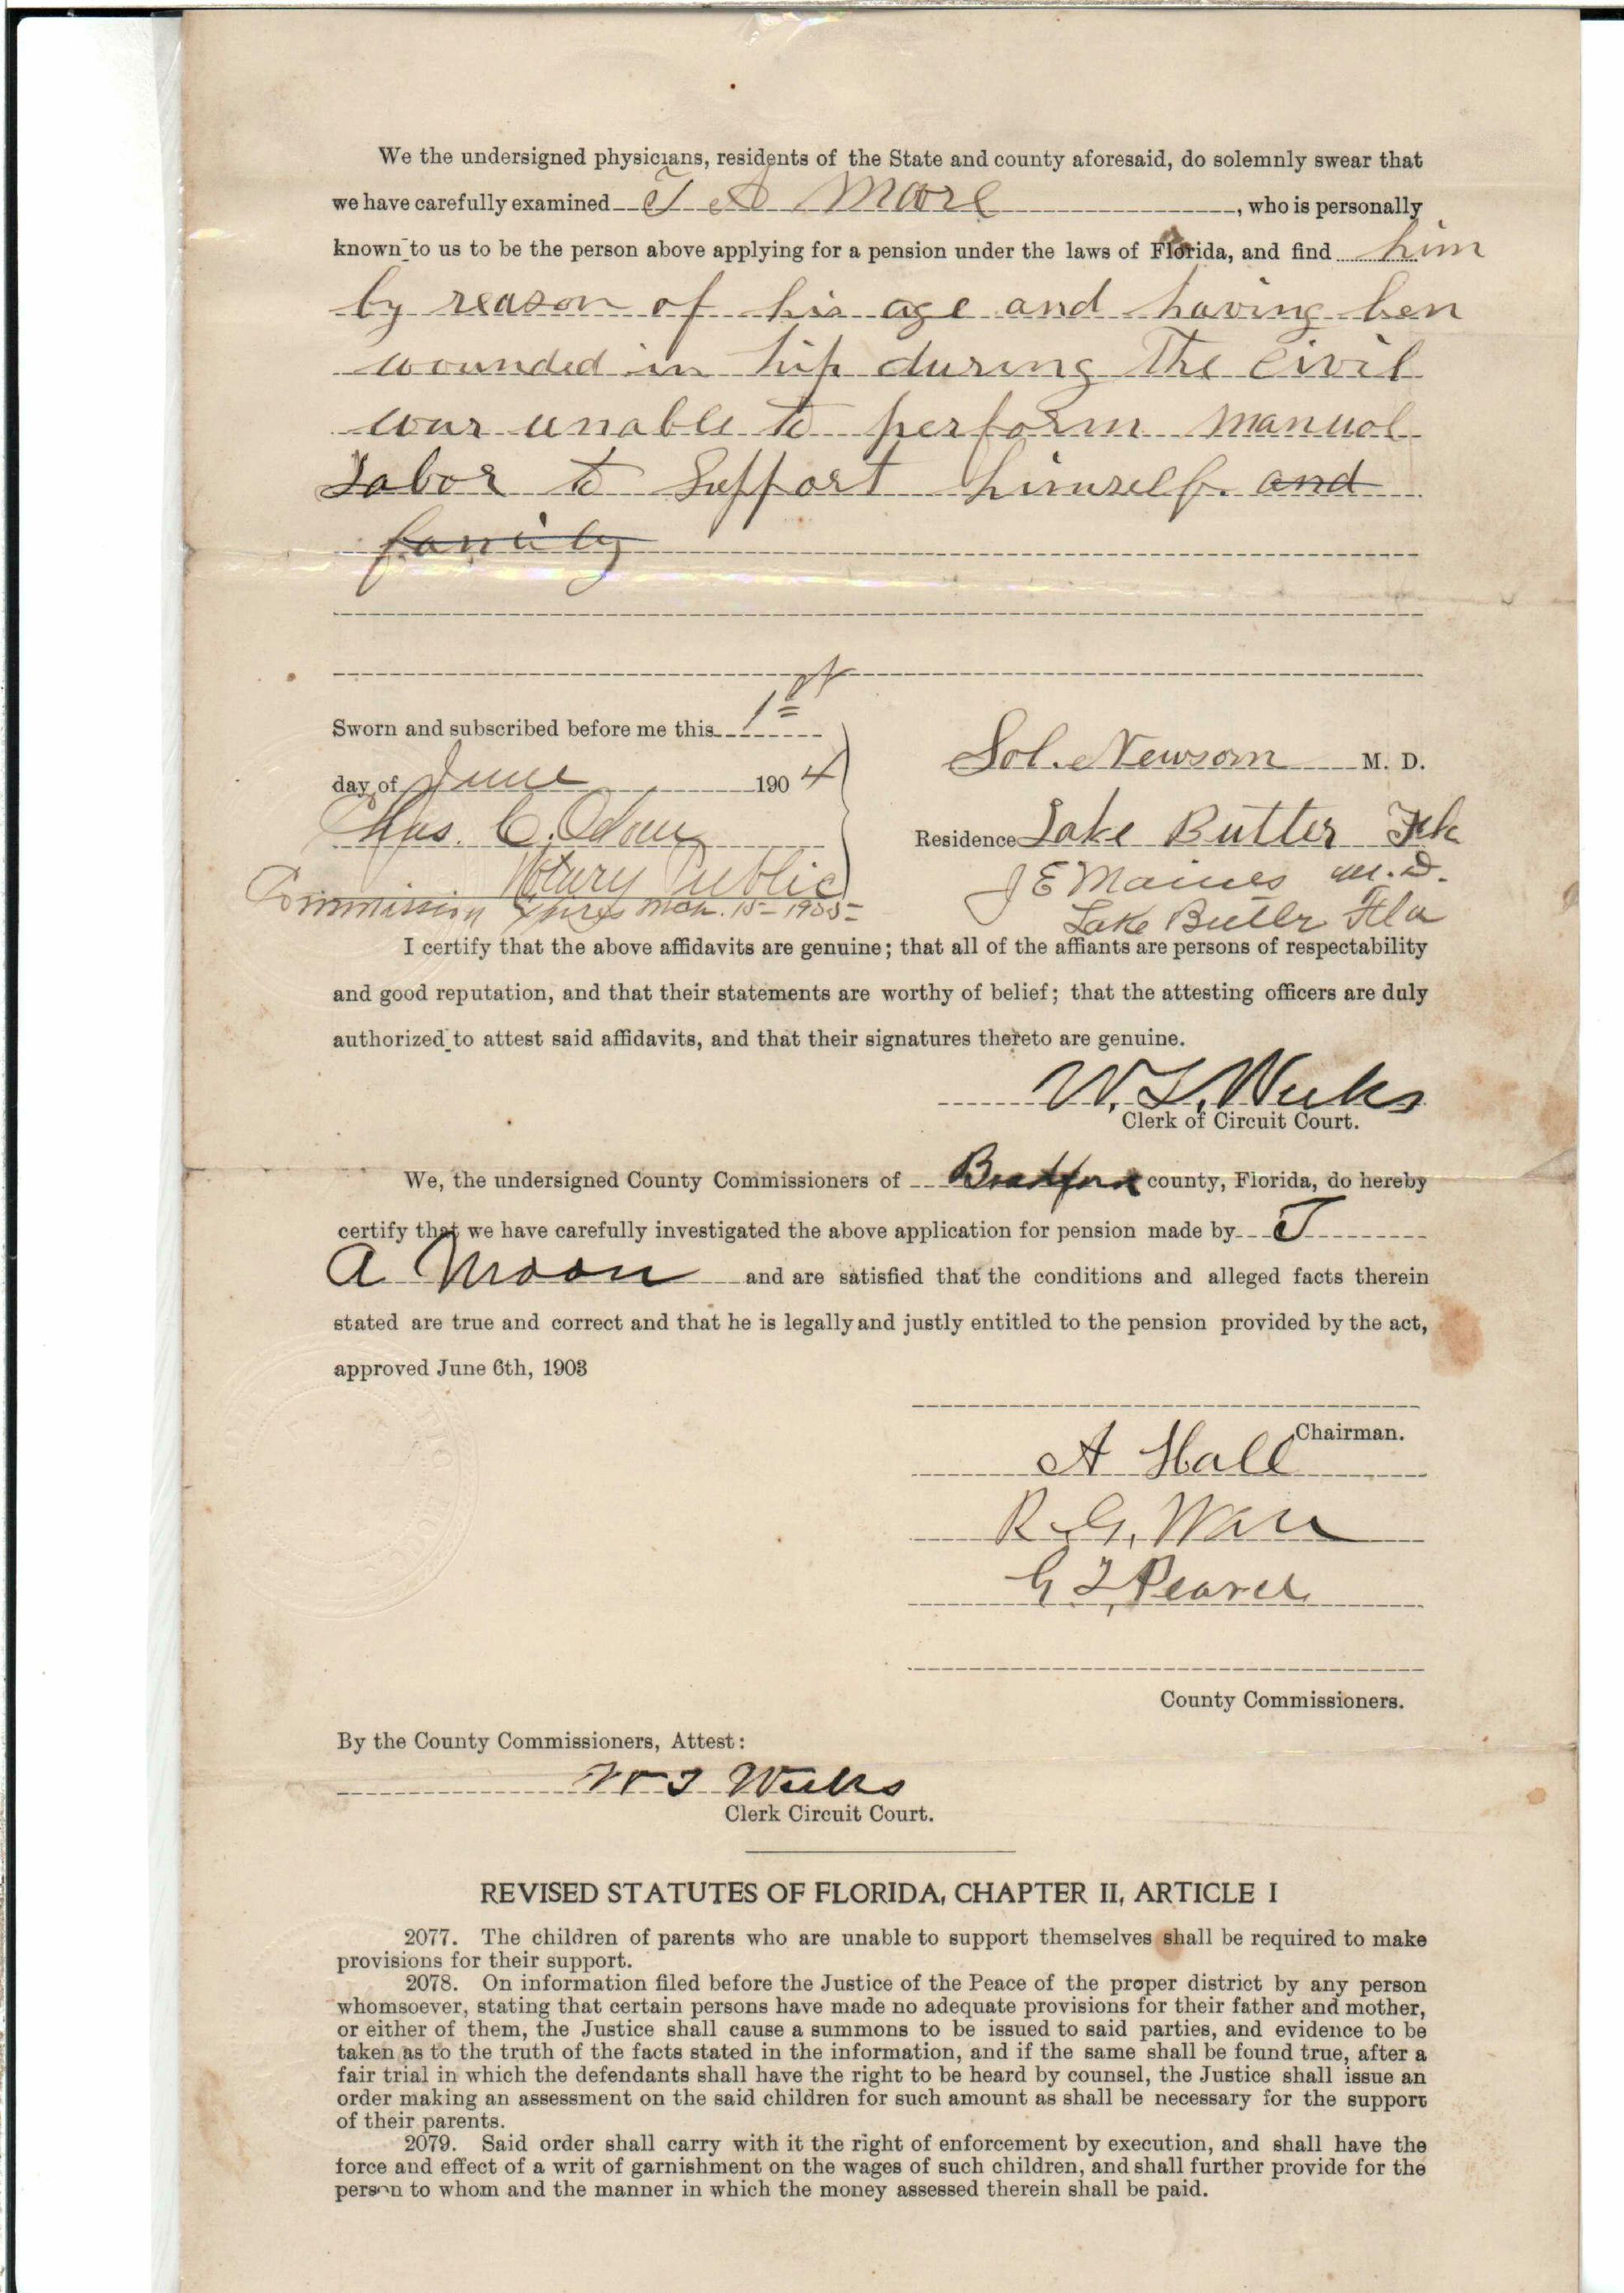 We the undersigned physicians, residents of the State and county aforesaid, do solemnly swear that
we have carefully examined T A Moore, who is personally
known to us to be the person above applying for a pension under the laws of Florida, and find him
by reason of his age and having ben
wounded in hip during The Civil
war unable to perform manual
Labor to Support himself. and
family
Sworn and subscribed before me this 1st
day of June 1904
Sol. Newsom M. D.
Chas. C. Odom
Residence Lake Butter Fla
Notary Public
J E Maines M.D.
Commission Expires Mch. 15- 1905-
Lake Butler Fla
I certify that the above affidavits are genuine; that all of the affiants are persons of respectability
and good reputation, and that their statements are worthy of belief; that the attesting officers are duly
authorized to attest said affidavits, and that their signatures thereto are genuine.
W. T. Weeks
Clerk of Circuit Court.
We, the undersigned County Commissioners of Bradford county, Florida, do hereby
certify that we have carefully investigated the above application for pension made by T
A Moore and are satisfied that the conditions and alleged facts therein
stated are true and correct and that he is legally and justly entitled to the pension provided by the act,
approved June 6th, 1903
Chairman.
A Hall
R. G.
G T Pearce
County Commissioners.
By the County Commissioners, Attest:
W T Weeks
Clerk Circuit Court.
REVISED STATUTES OF FLORIDA, CHAPTER II, ARTICLE I
2077. The children of parents who are unable to support themselves shall be required to make
provisions for their support.
2078. On information filed before the Justice of the Peace of the proper district by any person
whomsoever, stating that certain persons have made no adequate provisions for their father and mother,
or either of them, the Justice shall cause a summons to be issued to said parties, and evidence to be
taken as to the truth of the facts stated in the information, and if the same shall be found true, after a
fair trial in which the defendants shall have the right to be heard by counsel, the Justice shall issue an
order making an assessment on the said children for such amount as shall be necessary for the support
of their parents.
2079. Said order shall carry with it the right of enforcement by execution, and shall have the
force and effect of a writ of garnishment on the wages of such children, and shall further provide for the
person to whom and the manner in which the money assessed therein shall be paid.